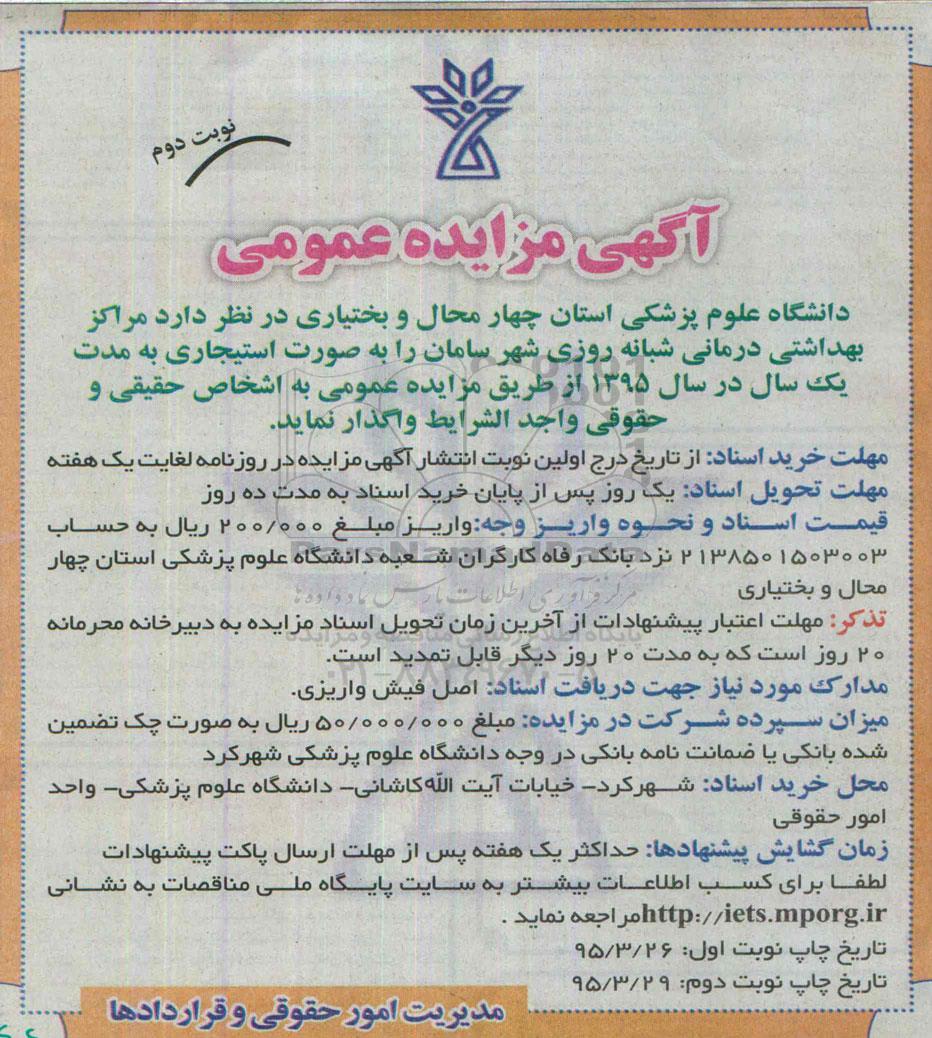 نوبت دوم
آگهی مزایده عمومی
دانشگاه علوم پزشکی استان چهار محال و بختیاری در نظر دارد مراکز
بهداشتی درمانی شبانه روزی شهر سامان را به صورت استیجاری به مدت
یک سال در سال ۱۳۹۵ از طریق مزایده عمومی به اشخاص حقیقی و
حقوقی واجد الشرایط واگذار نماید.
مهلت خرید اسناد: از تاریخ درج اولین نوبت انتشار آگهی مزایده در روزنامه لغایت یک هفته
مهلت تحویل اسناد: یک روز پس از پایان خرید اسناد به مدت ده روز
قیمت اسناد و نحوه واریز وجه: واریز مبلغ ۲۰۰/۰۰۰ ریال به حساب
۲۱۳۸۵۰۱۵۰۳۰۰۳ نزد بانک رفاه کارگران شعبه دانشگاه علوم پزشکی استان چهار
محال و بختیاری
تذکر: مهلت اعتبار پیشنهادات از آخرین زمان تحویل اسناد مزایده به دبیرخانه محرمانه
۲۰ روز است که به مدت ۲۰ روز دیگر قابل تمدید است.
مدارک مورد نیاز جهت دریافت اسناد: اصل فیش واریزی.
میزان سپرده شرکت در مزایده: مبلغ ۵۰/۰۰۰/۰۰۰ ریال به صورت چک تضمین
شده بانکی یا ضمانت نامه بانکی در وجه دانشگاه علوم پزشکی شهرکرد
محل خرید اسناد: شهرکرد- خیابات آیت الله کاشانی- دانشگاه علوم پزشکی- واحد
امور حقوقی
زمان گشایش پیشنهادها: حداکثر یک هفته پس از مهلت ارسال پاکت پیشنهادات
لطفا برای کسب اطلاعات بیشتر به سایت پایگاه ملی مناقصات به نشانی
http://iets.mporg.ir مراجعه نماید .
تاریخ چاپ نوبت اول: ۹۵/۳/۲۶
تاریخ چاپ نوبت دوم: ۹۵/۳/۲۹
مدیریت امور حقوقی و قراردادها